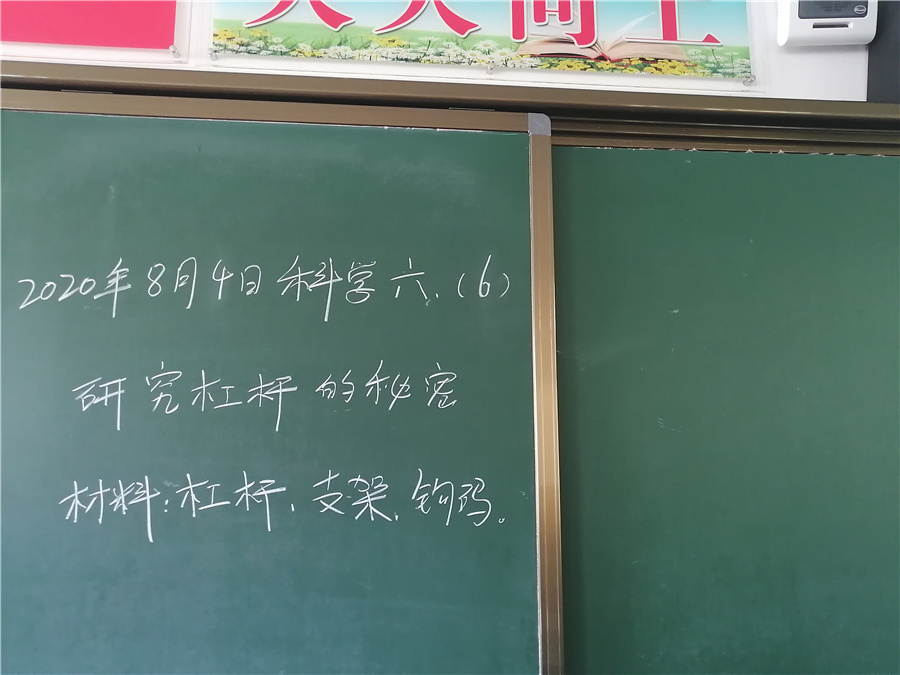 天天向上
2020年8月4日科学六.(6)
研究杠杆的秘密
材料:杠杆、支架、钩码。